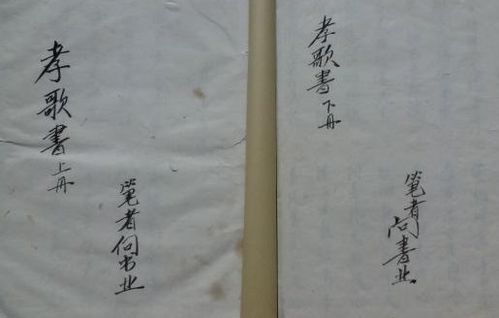 孝歌書上册
笔者向书业
孝歌書下册
笔者向書业